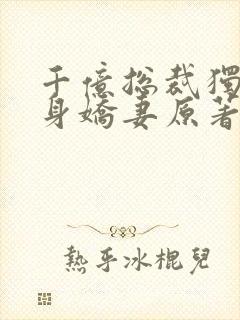 千億總裁獨
身嬌妻原著
熱乎冰棍兒